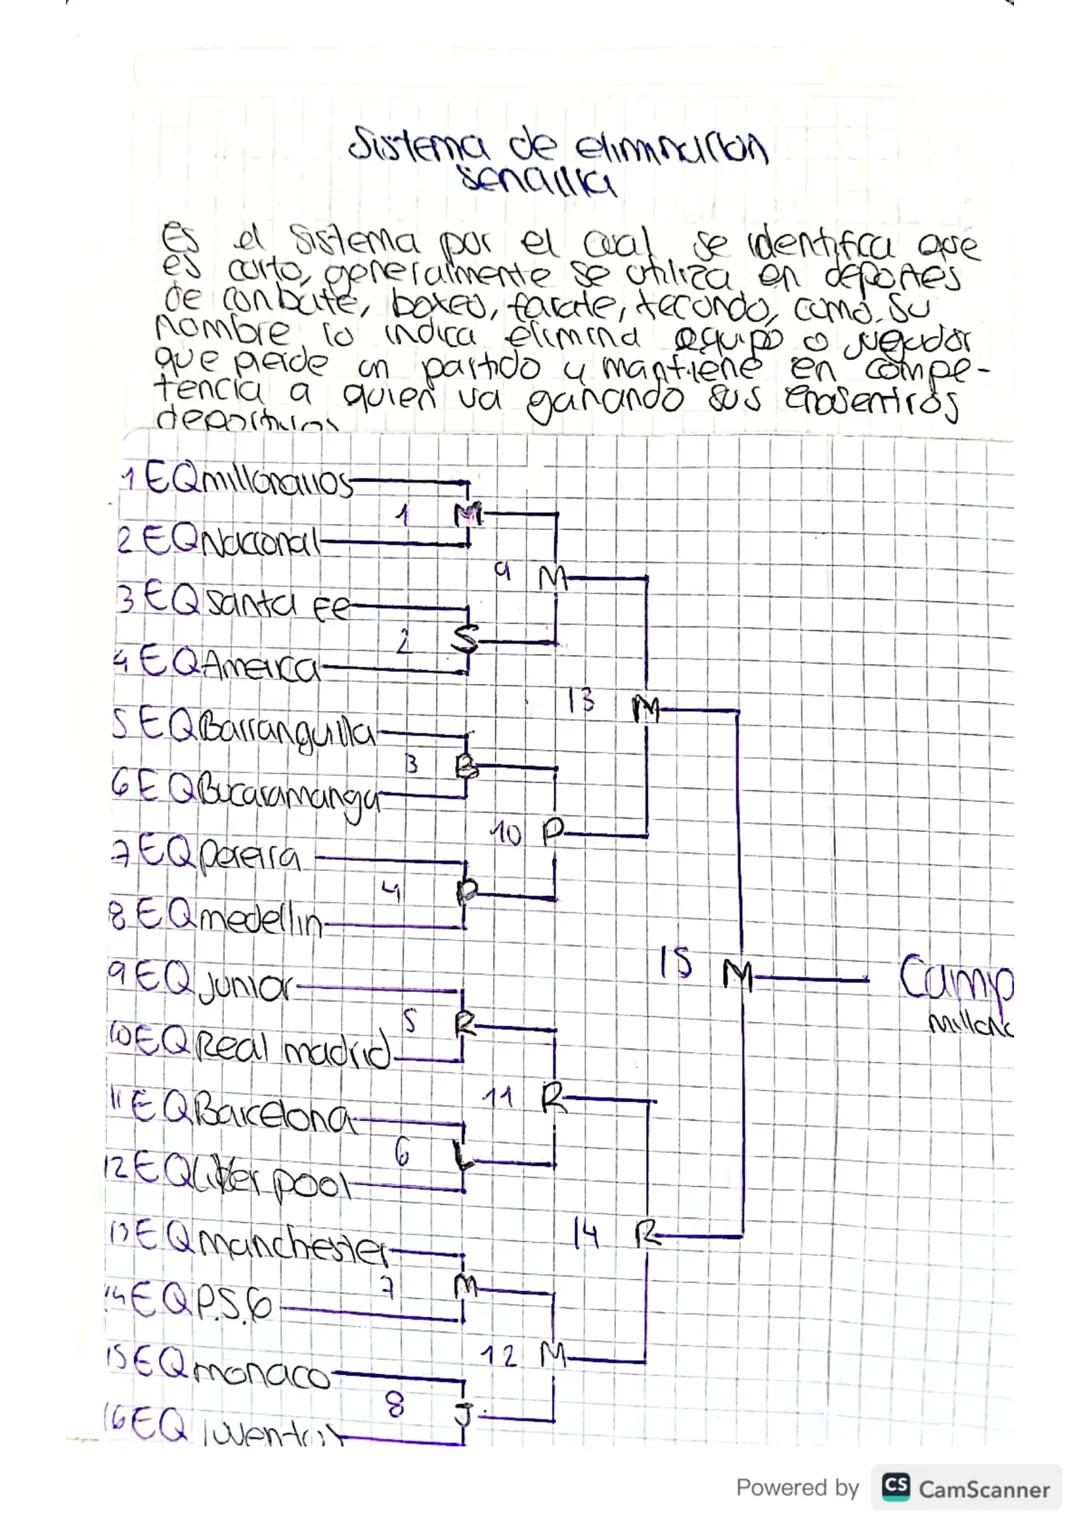 Sistema de eliminacion
sencilla
es el sistema por el cual se identifica que
es corto, generalmente se utiliza en deportes
de conbate, boxeo, tecondo, como su
nombre lo indica elimina equipo o jugador
que pierde un partido y mantiene en compe-
tencia a quien va ganando sus
deportivos
1 EQ millonarios
1 M
2 EQ Nacional
9 M
3 EQ santa Fe
2 S
4 EQ America
13 M
5 EQ Barranquilla
3 B
6 EQ Bucaramanga
10 P
7 EQ pereira
4 P
8 EQ medellin
15 M Camp
Millona
9 EQ junior
5 R
10 EQ Real madrid
11 R
11 EQ Barcelona
6 L
12 EQ Liver pool
14 R
13 EQ manchester
7 M
14 EQ P.S.G
12 M
15 EQ monaco
8 J
16 EQ juventus
Powered by CS CamScanner